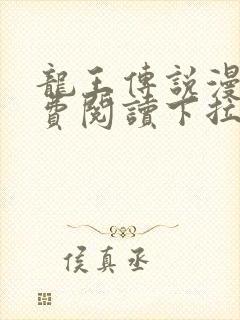 龍王傳說漫
費閱讀下拉
侯真丞